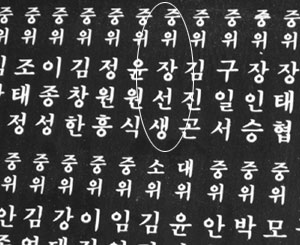 중위
중위조태정
중위이종성
중위김창한
중위정원흥
중위윤원식
중위장선생
중위김진곤
중위구일서
중위장인승
중위장태협
중위안
중위김
중위강
중위이
중위임
소위김
대위윤
중위안
중위박
중위모